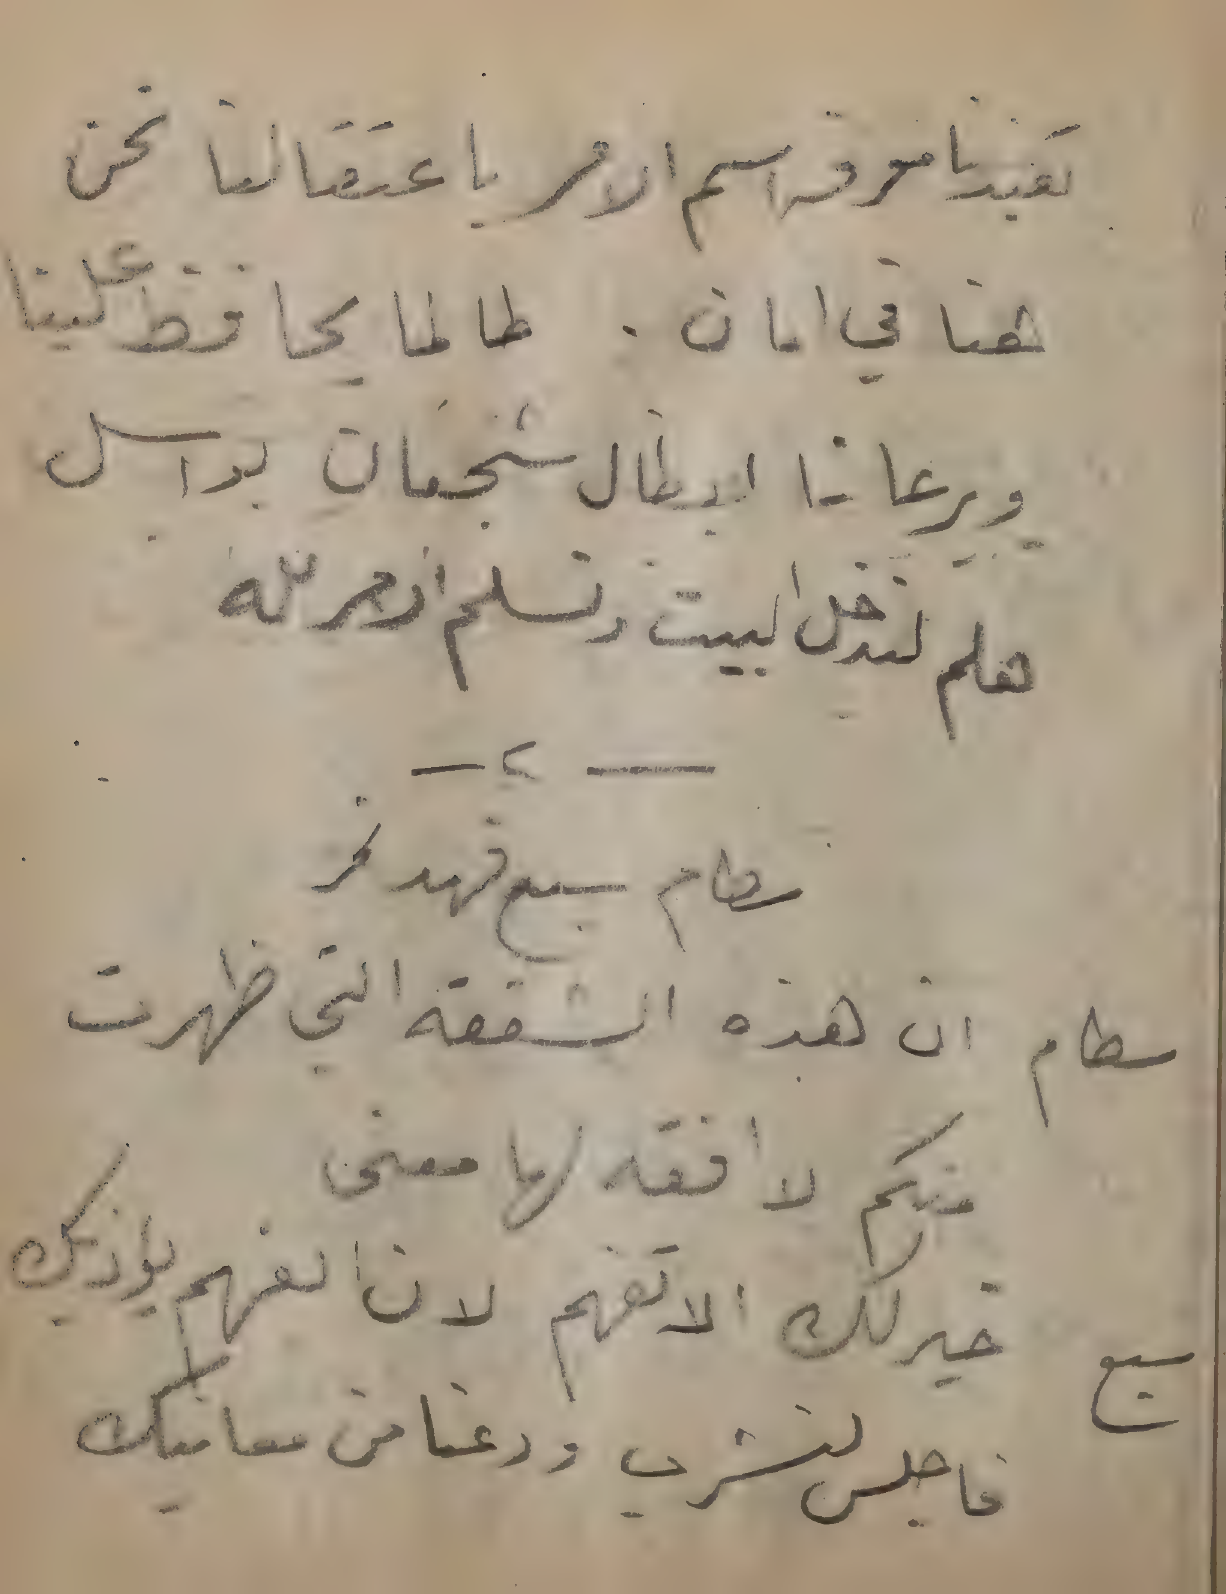 تفيدنا معرفة اسم الامر باعتقالنا نحن
هنا في امان . طالما يحافظ علينا
ويرعانا ابطال شجعان بواسل
هلم لندخل البيت ونسلم الامر لله
— ٢ —
سطام سبع فهد نمر
سطام ان هذه الشفقة التي ظهرت
منكم لا افقه لها معنى
سبع خير لك الا تفهم لان الفهم يؤذيك
فاجلس لنشرب ودعنا من معانيك